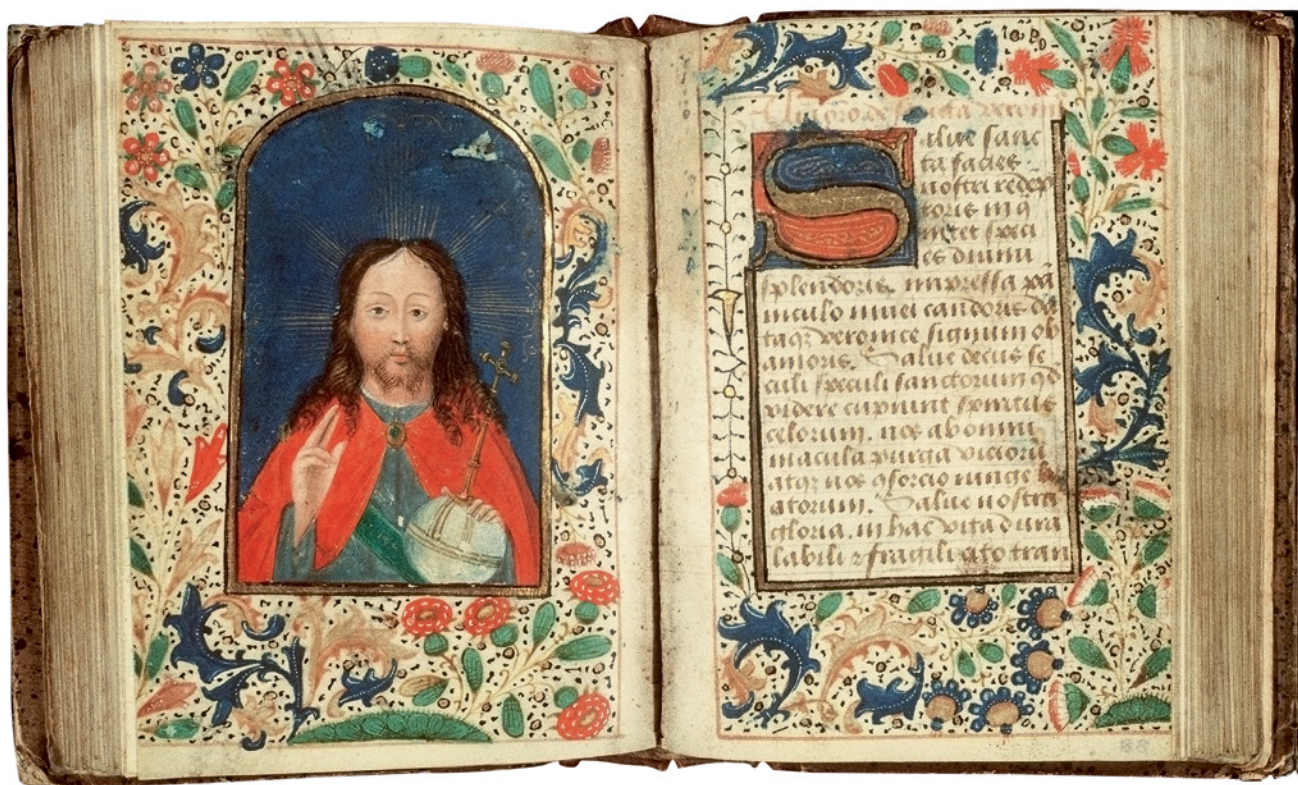 de sancta
Salue sanc
ta facies
nostri redēp
toris in q̄
nitet speci
es diuini
splendoris. impressa pā
niculo niuei candoris da
taqꝫ veronice signum ob
amoris. Salue decus se
culi speculi sanctorum qd̄
videre cupiunt spiritus
celorum. nos ab omni
macula purga vicioꝝ
atqꝫ nos ꝯsorcio iunge
atorum. Salue nostra
gloria. in hac vita dura
labili ⁊ fragili cito tran
88